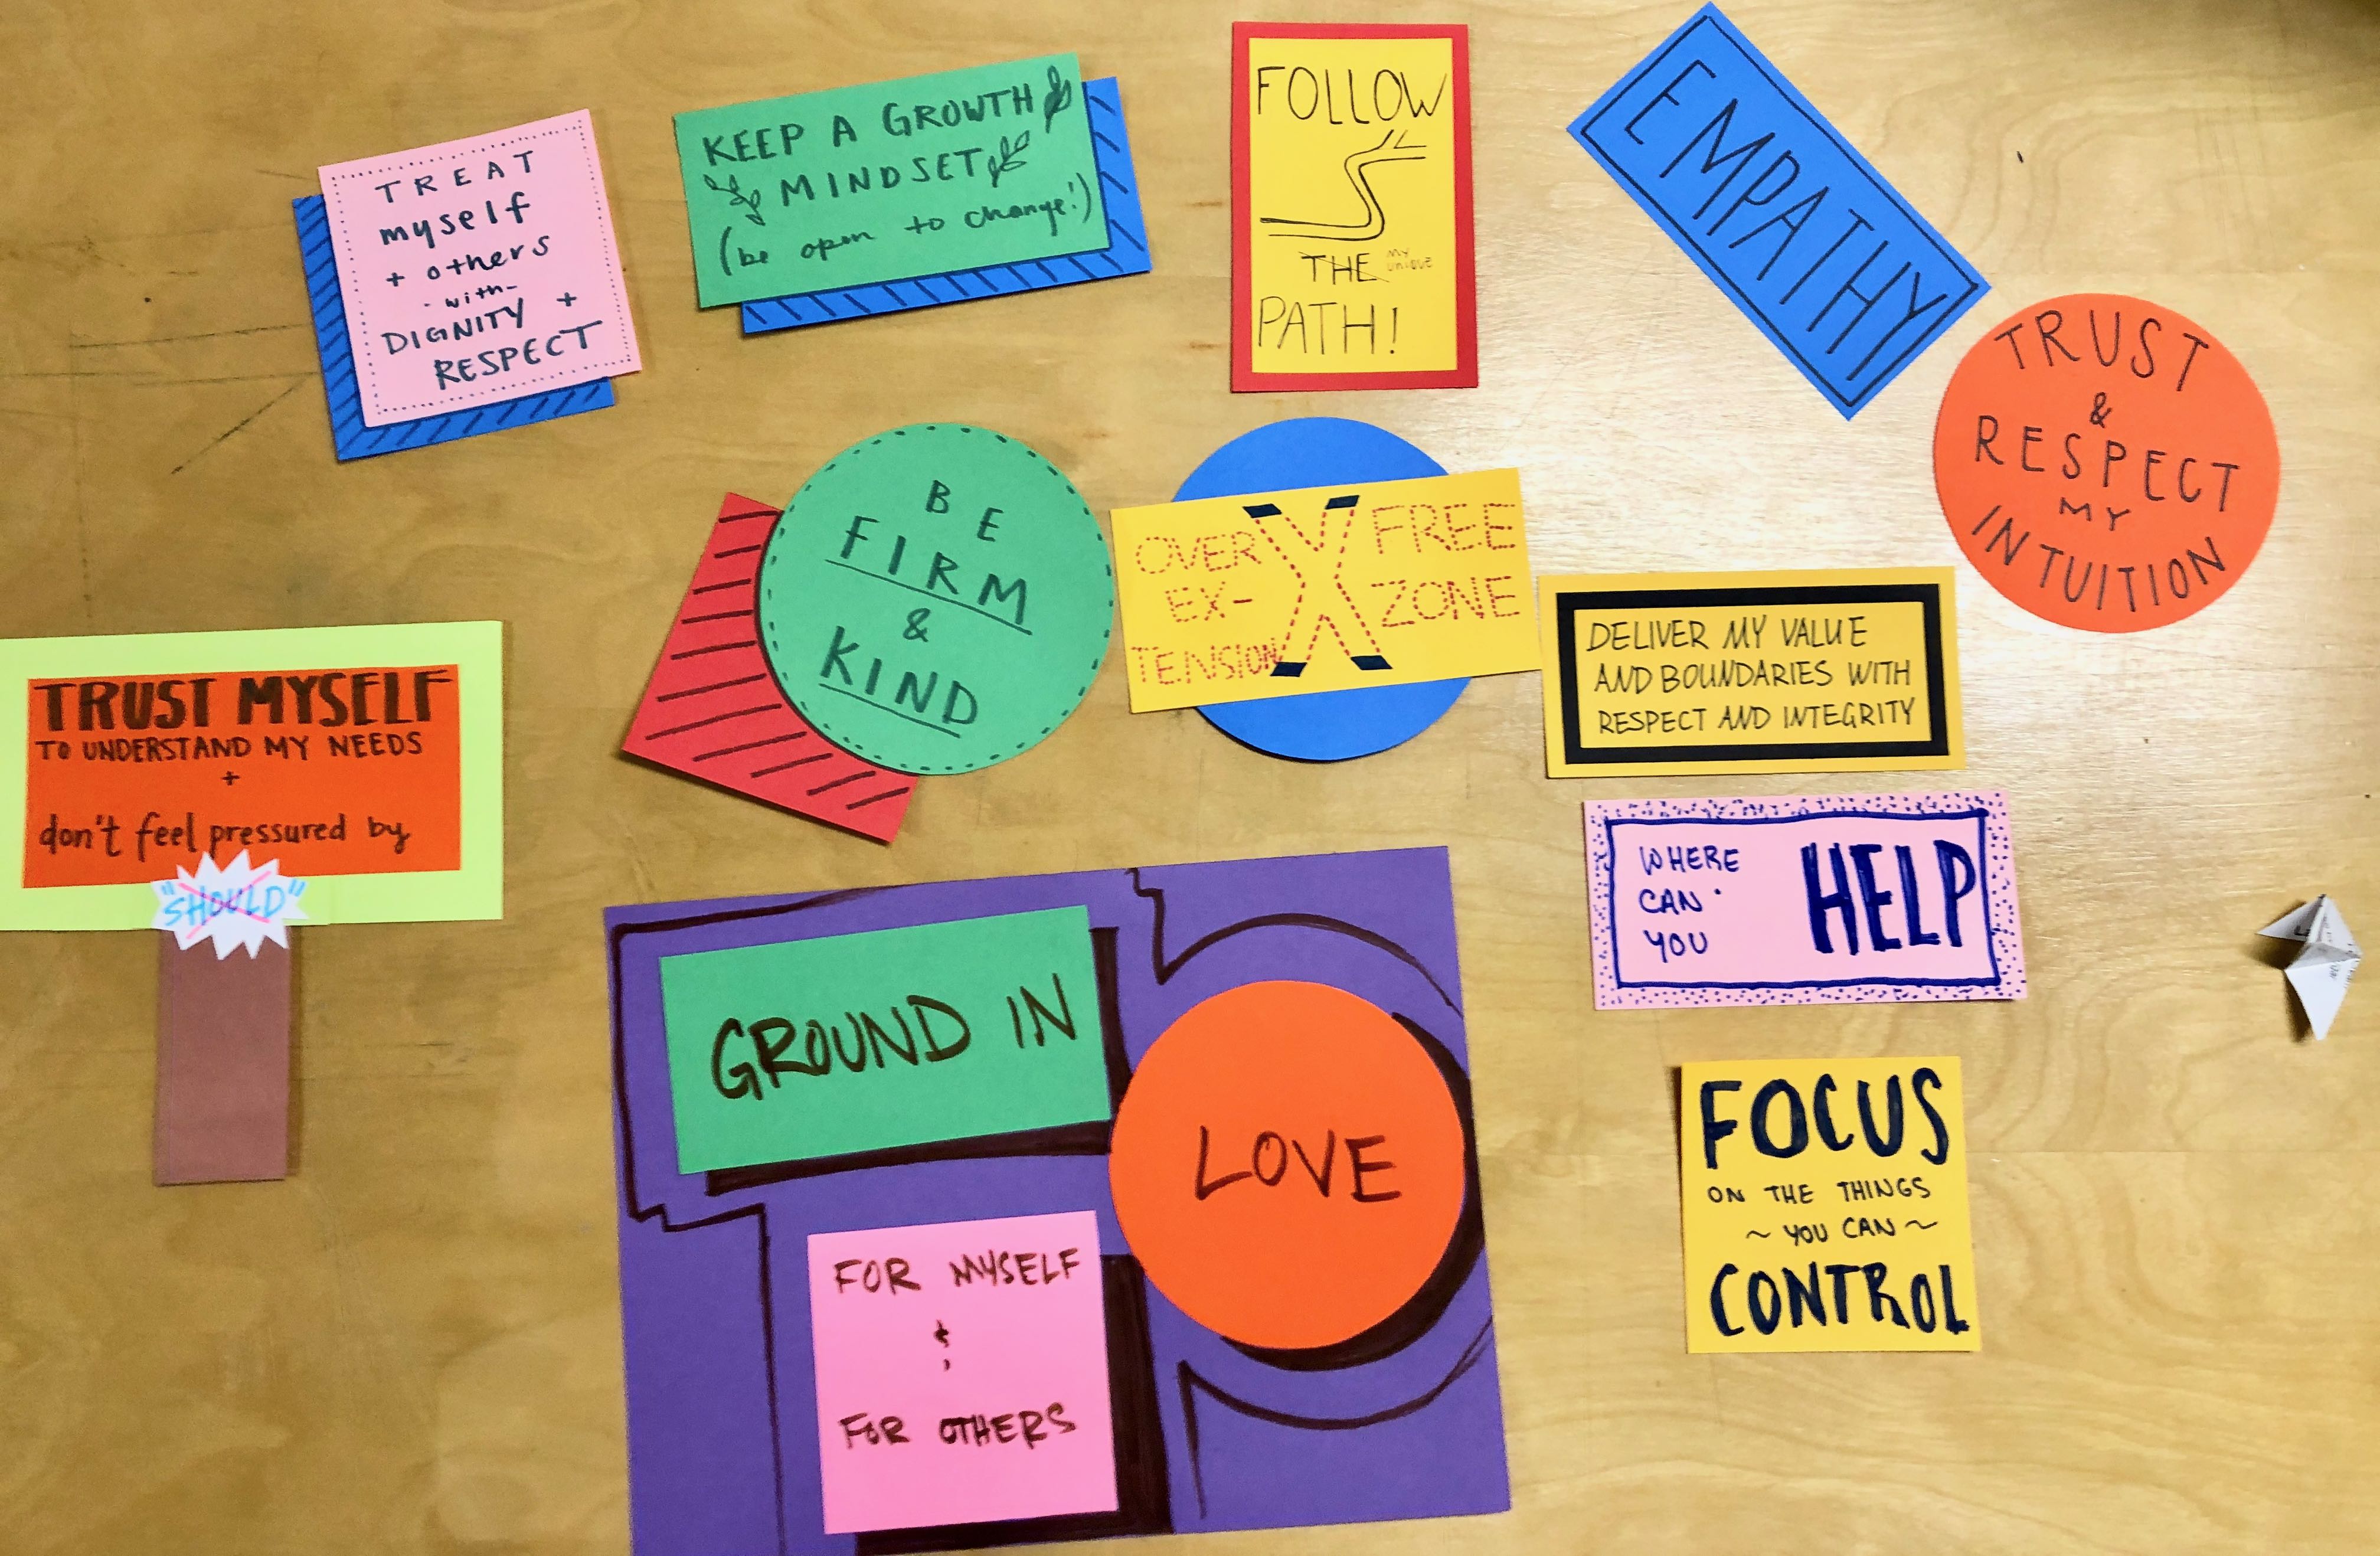 TREAT
myself
+ others
- with -
DIGNITY +
RESPECT
KEEP A GROWTH
MINDSET
(be open to change!)
FOLLOW
THE MY UNIQUE
PATH!
EMPATHY
TRUST
&
RESPECT
MY
INTUITION
BE
FIRM
&
KIND
OVER
EX-
TENSION
X
FREE
ZONE
DELIVER MY VALUE
AND BOUNDARIES WITH
RESPECT AND INTEGRITY
TRUST MYSELF
TO UNDERSTAND MY NEEDS
+
don't feel pressured by
"SHOULD"
WHERE
CAN
YOU
HELP
GROUND IN
LOVE
FOR MYSELF
&
FOR OTHERS
FOCUS
ON THE THINGS
~ YOU CAN ~
CONTROL